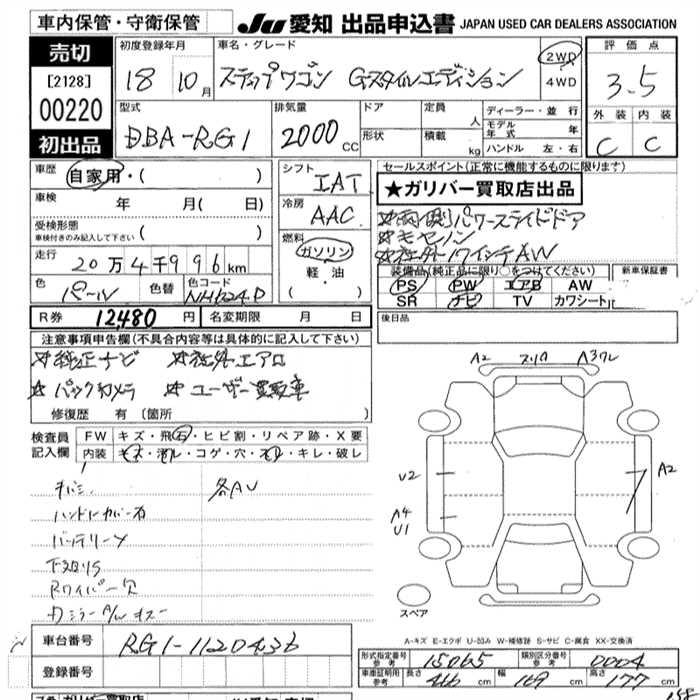 車内保管・守衛保管 JU 愛知 出品申込書 JAPAN USED CAR DEALERS ASSOCIATION
売切
[2128]
00220
初出品
初度登録年月 車名・グレード
18 10月 ステップワゴン Gスタイルエディション
2WD
4WD
評価点
3.5
外装 内装
C C
型式 排気量 ドア 定員 人 ディーラー・並行
DBA-RG1 2000cc 形状 積載 kg
モデル年式 年
ハンドル 左・右
車歴 自家用・( )
車検 年 月( 日)
受検形態
車検付きのみ記入して下さい ( )
走行 20万4千996km
色 パール 色替 色コード NH624P
シフト IAT
冷房 AAC
燃料
ガソリン
軽・油
( )
セールスポイント(正常に機能するものに限ります)
★ガリバー買取店出品
☆両側パワースライドドア
☆モセノン
☆社外17インチAW
装備品(純正品に限り○をつけてください) 新車保証書
PS PW エアB AW
SR ナビ TV カワシート
R券 12,480円 名変期限 月 日
後日品
注意事項申告欄(不具合内容等は具体的に記入して下さい)
☆純正ナビ ☆社外エアロ
☆バックカメラ ☆ユーザー買取車
修復歴 有 (箇所 )
検査員記入欄
FW キズ・飛石・ヒビ割・リペア跡・X要
内装 キズ・汚レ・コゲ・穴・スレ・キレ・破レ
各AU
ハンドルカバー有
バッテリーツ
下廻りS
Rワイパー欠
A2 スリキ A3ワレ
U2 A2
A4
U1
スペア
A-キズ E-エクボ U-凹み W-補修跡 S-サビ C-腐食 XX-交換済
車台番号 RG1-1120436
登録番号
形式指定番号参考 15065 類別区分番号参考 0004
車庫証明用参考 長さ 466cm 幅 169cm 高さ 177cm